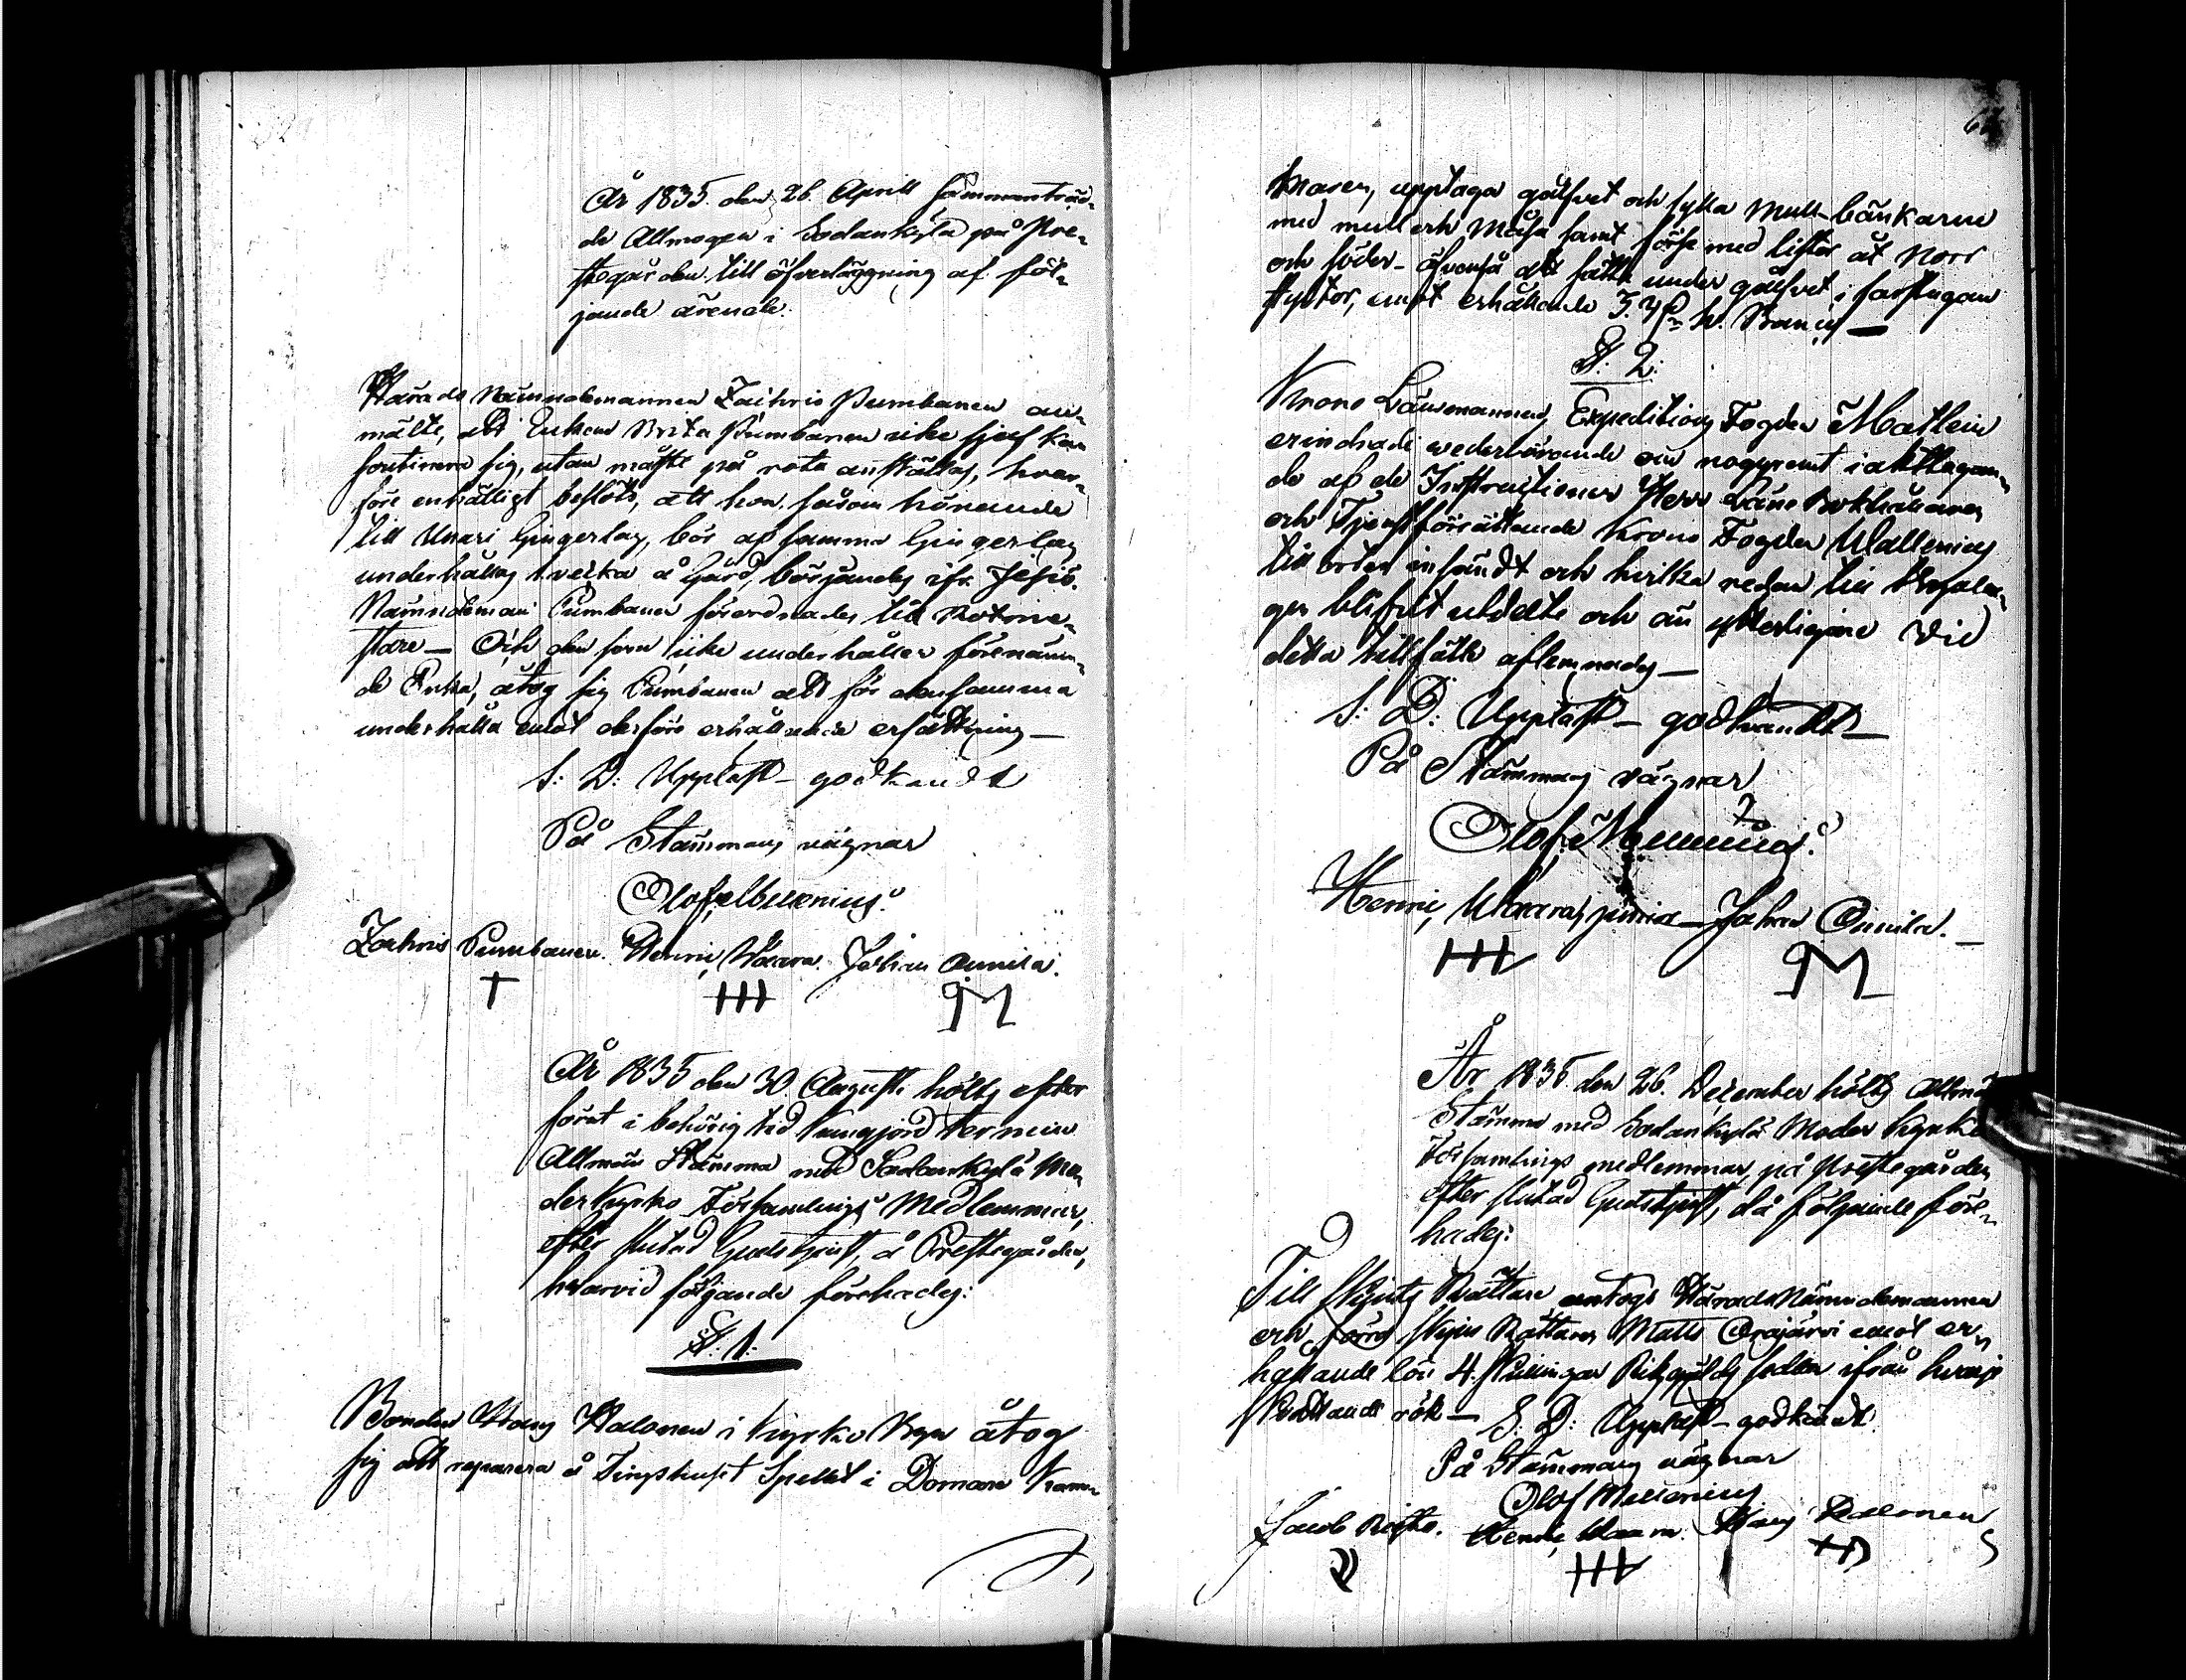 År 1835. den 26. Aprill sammanträd-
de Allmogen i Sodankylä på Pre-
stegården till öfverläggning af föl-
jande ärende.
Härads Nämndemannen Zachris Pumbanen an-
mälte, att Enkan Brita Pumbanen icke sjelf kan
sig, utan måste på rota anställas, hvar-
före enhälligt beslöts, att hon, såsom hörande
till Unari Gingerlag, bör af samma Gingerlag
underhållas 1 vecka å Gård, börjandes ifr. Jesiö.
Nämndeman Pumbanen förordnades till Rotme-
stare — Och den som icke underhåller förenämn-
de Enka, åtog sig Pumbanen att för densamma
underhålla emot derföre erhållande ersättning —
S: D: Uppläst — godkändt
På Stämmans vägnar
Olof Mellenius.
Zachris Pumbanen. Henric Waara. Johan Onnila.
År 1835 den 30. Augusti hölts efter
förut i behörig tid kungjord termin
Allmän Stämma med Sodankylä Mo-
derkyrko Församlings Medlemmar,
efter slutad Gudstjenst, å Prestegården,
hvarvid följande förehades:
§. 1.
Bonden Hans Halonen i Kyrko Byn åtog
sig att reparera å Tingshuset Spellet i Domare Kam-
maren, upptaga gålfvet och fylla Mull-bänkarne
med mull och Måsa samt förse med lister åt Norr
och söder — äfvenså att sätta under gålfvet i farstugan
styttor, emot erhållande 3. B:co
§. 2.
Krono Länsmannen, Expeditions Fogden Matlein
erindrade wederbörande om noggrannt iakttagan-
de af de Instructioner Herr Läns Bokhållaren
och Tjenstförrättande Krono Fogden Wallenius
till orten insändt och hvilka redan till
blifvit utdelte och än ytterligare vid
detta tillfälle aflemnades —
S: D: Uppläst — godkändt —
På Stämmans vägnar
Olof Mellenius.
Henric Waara, junior — Johan Onnila. —
År 1835. den 26. December hölts Allmän
Stämma med Sodankylä Moder Kyrko
Församlings medlemmar på Prestegården
efter slutad Gudstjenst, då följande före-
hades:
Till Skjuts Rättare antogs Härads Nämndemannen
och förre Skjuts Rättaren Matts Orajärvi emot er-
hållande lön 4. Skillingar Riksgälds sedlar ifrån hvarje
skattande rök — S. D: Uppläst — godkändt.
På Stämmans vägnar
Olof Mellenius
Jacob Henric Waara. Hans Halonen